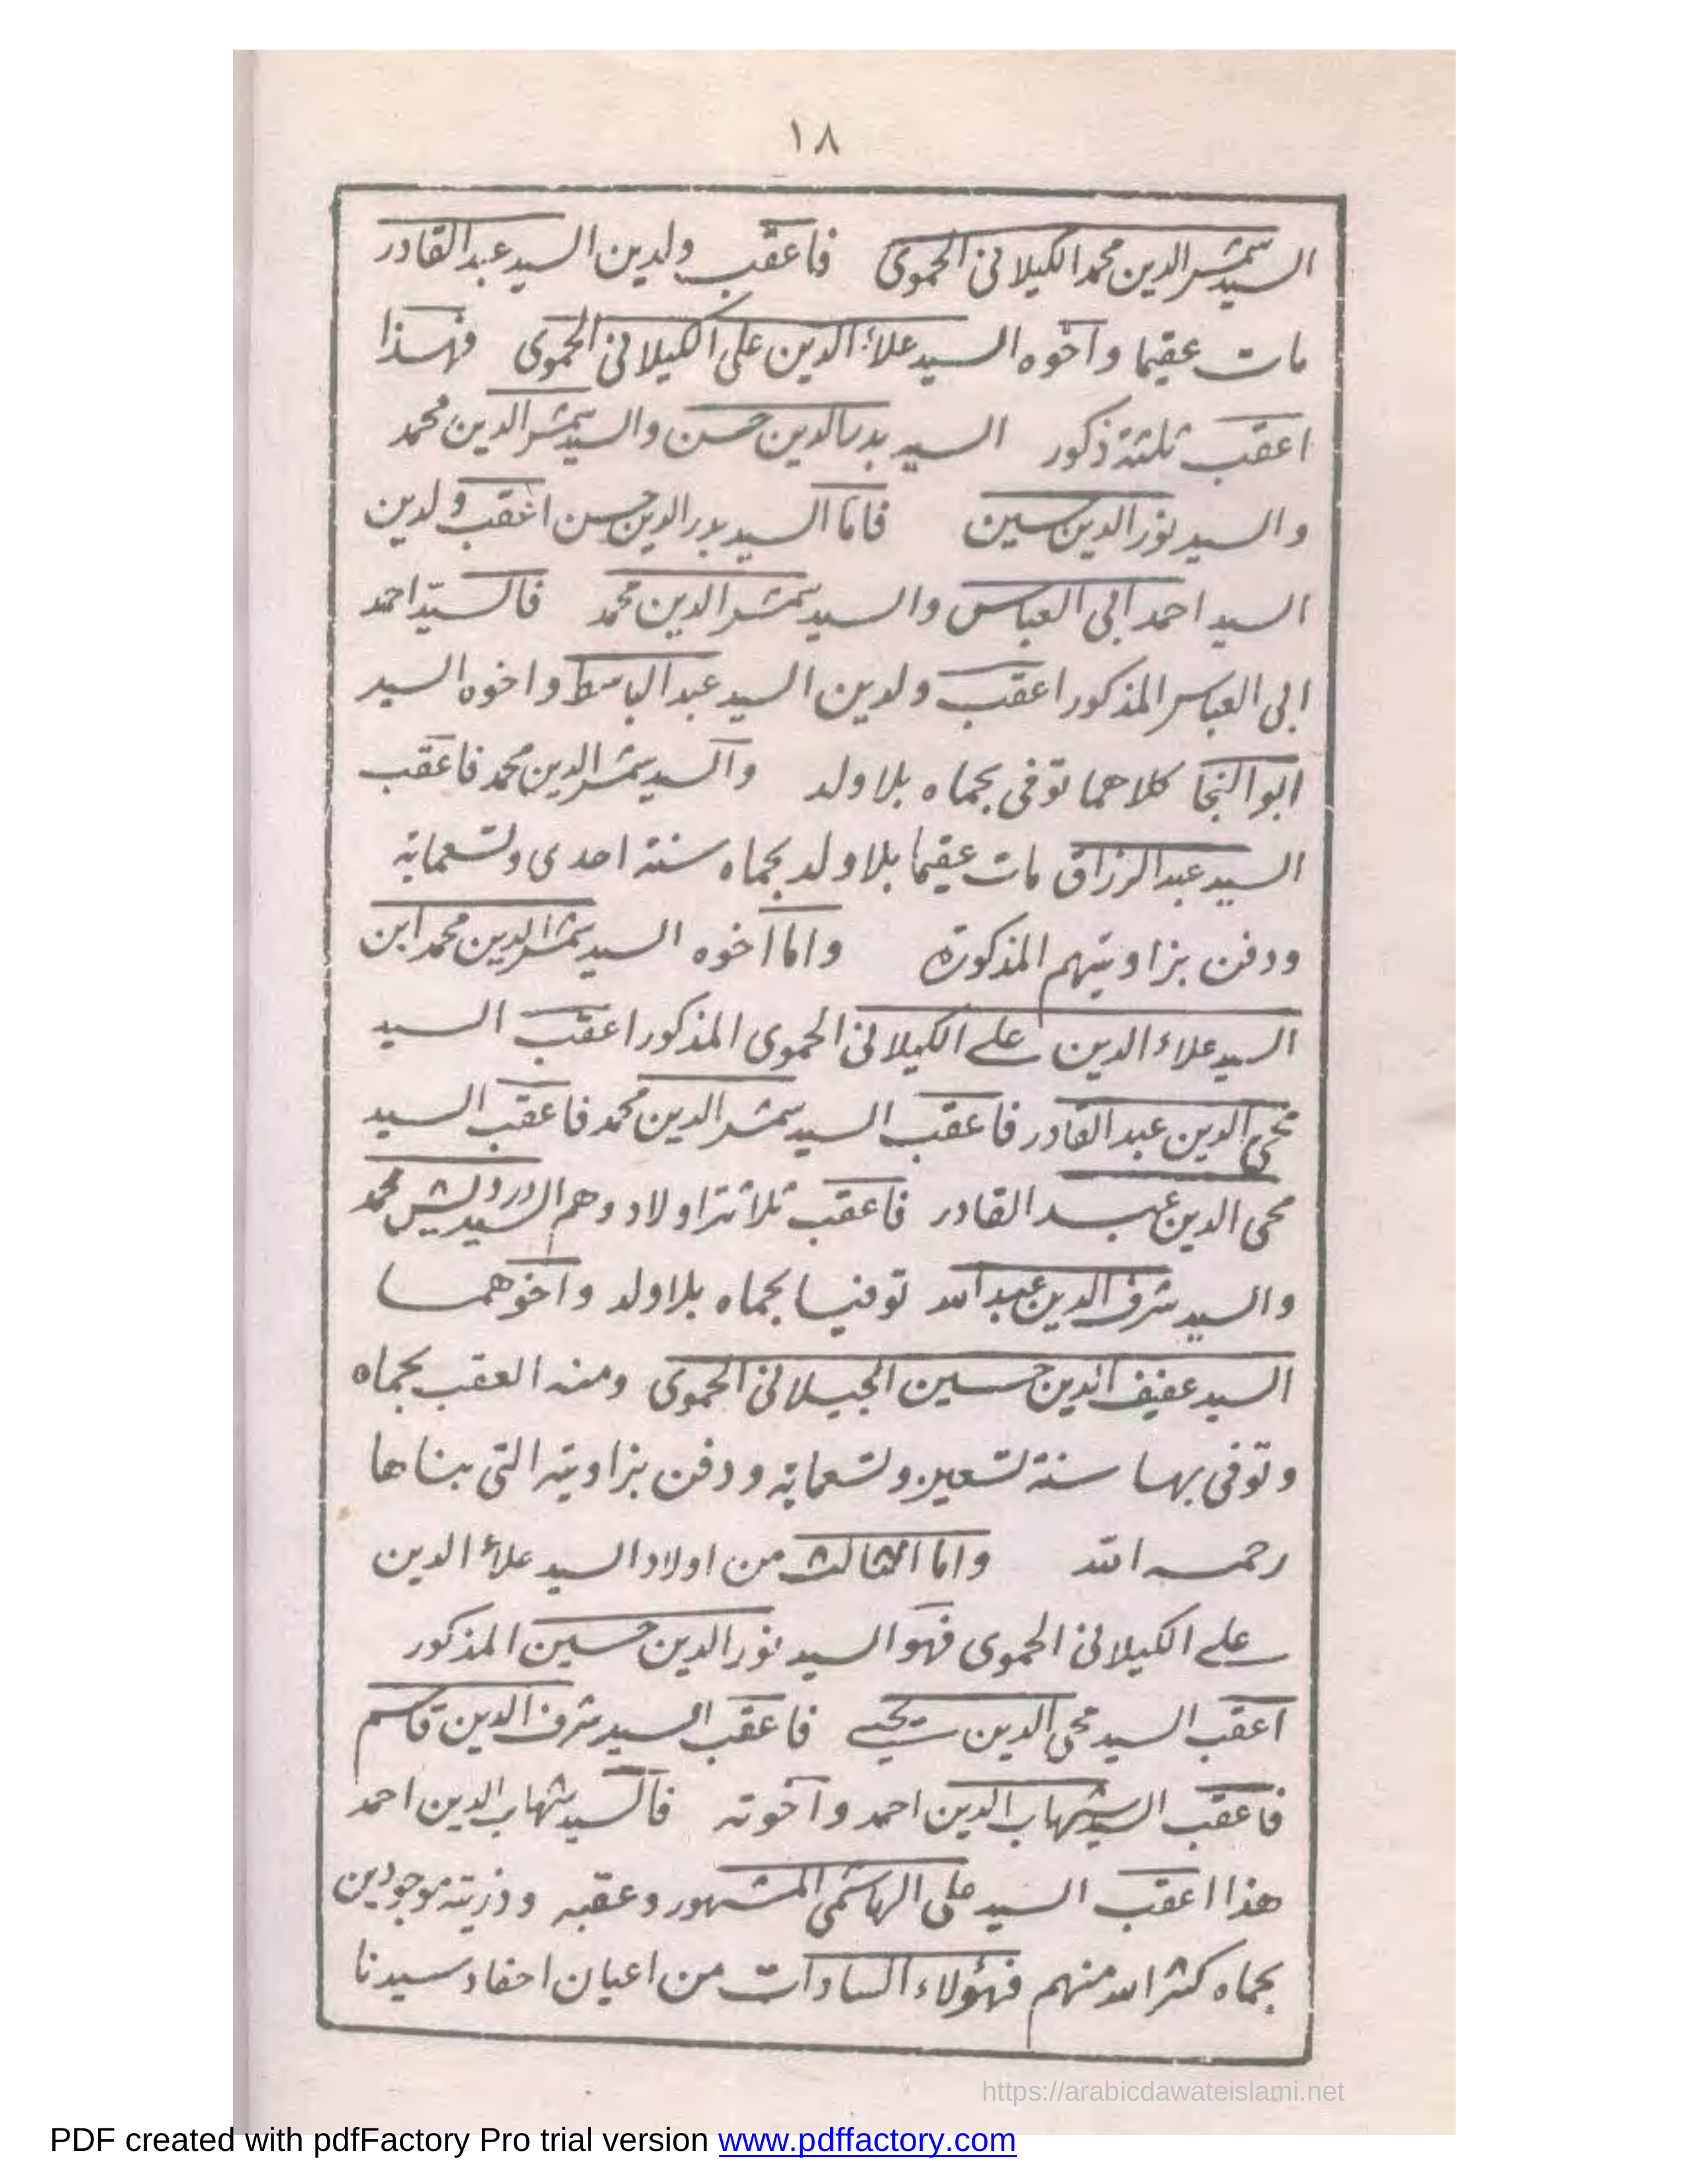 ١٨
السيد شمس الدين محمد الكيلانى الحموى فاعقب ولدين السيد عبد القادر
مات عقيما واخوه السيد علاء الدين على الكيلانى الحموى فهذا
اعقب ثلثة ذكور السيد بدر الدين حسن والسيد شمس الدين محمد
والسيد نور الدين حسين فاما السيد بدر الدين حسن اعقب ولدين
السيد احمد ابى العباس والسيد شمس الدين محمد فالسيد احمد
ابى العباس المذكور اعقب ولدين السيد عبد الباسط واخوه السيد
ابو النجا كلاهما توفى بحماه بلا ولد والسيد شمس الدين محمد فاعقب
السيد عبد الرزاق مات عقيما بلا ولد بحماه سنة احدى وتسعماية
ودفن بزاويتهم المذكورة واما اخوه السيد شمس الدين محمد ابن
السيد علاء الدين على الكيلانى الحموى المذكور اعقب السيد
محى الدين عبد القادر فاعقب السيد شمس الدين محمد فاعقب السيد
محى الدين عبد القادر فاعقب ثلاثة اولاد وهم السيد درويش محمد
والسيد شرف الدين عبد الله توفيا بحماه بلا ولد واخوهما
السيد عفيف الدين حسين الجيلانى الحموى ومنه العقب بحماه
وتوفى بها سنة تسعين وتسعماية ودفن بزاويته التى بناها
رحمه الله واما الثالث من اولاد السيد علاء الدين
على الكيلانى الحموى فهو السيد نور الدين حسين المذكور
اعقب السيد محى الدين يحيى فاعقب السيد شرف الدين قاسم
فاعقب السيد شهاب الدين احمد واخوته فالسيد شهاب الدين احمد
هذا اعقب السيد على الهاشمى المشهور وعقبه وذريته موجودين
بحماه كثر الله منهم فهؤلاء السادات من اعيان احفاد سيدنا
https://arabicdawateislami.net
PDF created with pdfFactory Pro trial version www.pdffactory.com